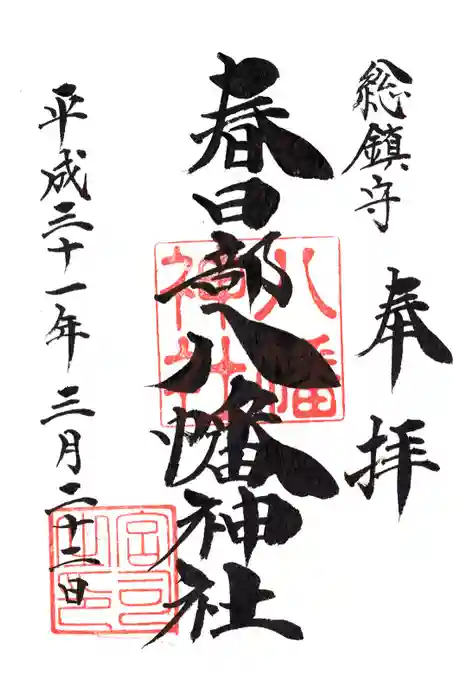 総鎮守
奉拝
春日部八幡神社
八幡
神社
平成三十一年三月二十二日
宮司
之印